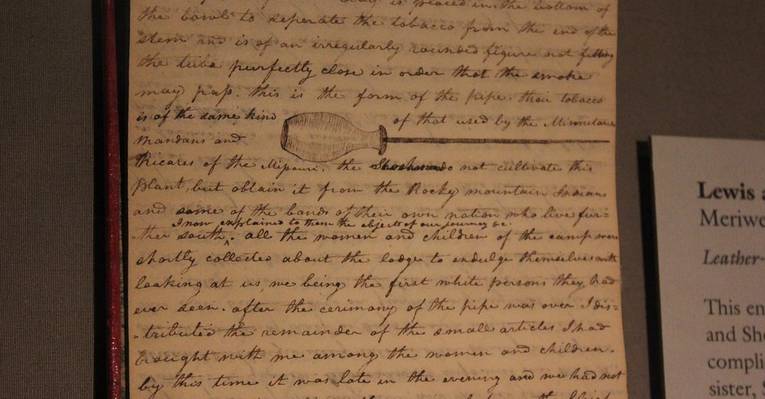 is placed in the bottom of
the bowl to seperate the tobacco from the end of the
stem and is of an irregularly rounded figure not fitting
the tube purfectly close in order that the smoke
may pass. this is the form of the pipe. their tobacco
is of the same kind of that used by the Minnetares
Mandans and
Ricares of the Missouri. the Shoshonees do not cultivate this
plant, but obtain it from the Rocky mountain Indians
and some of the bands of their own nation who live fur-
I now explained to them the objects of our journey &c
ther south. all the women and children of the camp were
shortly collected about the lodge to endulge themselves with
looking at us, we being the first white persons they had
ever seen. after the cerimony of the pipe was over I dis-
-tributed the remainder of the small articles I had
brought with me among the women and children.
by this time it was late in the evening and we had not
Lewis a
Meriwe
Leather-
This en
and Sho
compli
sister, S